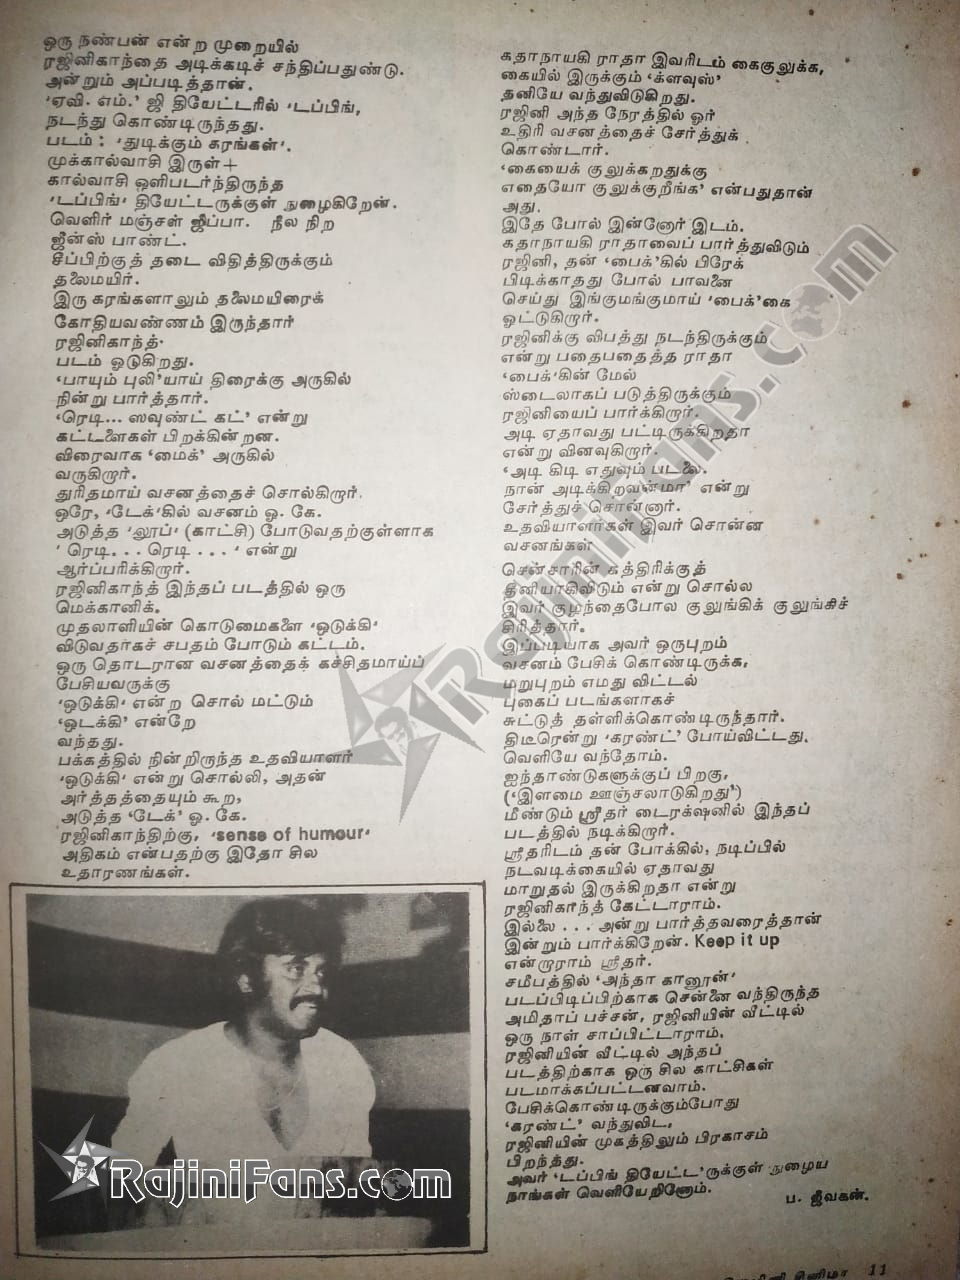 ஒரு நண்பன் என்ற முறையில்
ரஜினிகாந்தை அடிக்கடிச் சந்திப்பதுண்டு.
அன்றும் அப்படித்தான்.
'ஏவி. எம்.' ஜி தியேட்டரில் 'டப்பிங்,
நடந்து கொண்டிருந்தது.
படம் : 'துடிக்கும் கரங்கள்'.
முக்கால்வாசி இருள்+
கால்வாசி ஒளிபடர்ந்திருந்த
'டப்பிங்' தியேட்டருக்குள் நுழைகிறேன்.
வெளிர் மஞ்சள் ஜிப்பா. நீல நிற
ஜீன்ஸ் பாண்ட்.
சீப்பிற்குத் தடை விதித்திருக்கும்
தலைமயிர்.
இரு கரங்களாலும் தலைமயிரைக்
கோதியவண்ணம் இருந்தார்
ரஜினிகாந்த்.
படம் ஓடுகிறது.
'பாயும் புலி'யாய் திரைக்கு அருகில்
நின்று பார்த்தார்.
'ரெடி... ஸவுண்ட் கட்' என்று
கட்டளைகள் பிறக்கின்றன.
விரைவாக 'மைக்' அருகில்
வருகிறார்.
துரிதமாய் வசனத்தைச் சொல்கிறார்.
ஒரே, 'டேக்'கில் வசனம் ஓ. கே.
அடுத்த 'லூப்' (காட்சி) போடுவதற்குள்ளாக
' ரெடி. . . ரெடி . . . ' என்று
ஆர்ப்பரிக்கிறார்.
ரஜினிகாந்த் இந்தப் படத்தில் ஒரு
மெக்கானிக்.
முதலாளியின் கொடுமைகளை 'ஒடுக்கி'
விடுவதாகச் சபதம் போடும் கட்டம்.
ஒரு தொடரான வசனத்தைக் கச்சிதமாய்ப்
பேசியவருக்கு
'ஒடுக்கி' என்ற சொல் மட்டும்
'ஒடக்கி' என்றே
வந்தது.
பக்கத்தில் நின்றிருந்த உதவியாளர்
'ஒடுக்கி' என்று சொல்லி, அதன்
அர்த்தத்தையும் கூற,
அடுத்த 'டேக்' ஓ. கே.
ரஜினிகாந்திற்கு, 'sense of humour'
அதிகம் என்பதற்கு இதோ சில
உதாரணங்கள்.
கதாநாயகி ராதா இவரிடம் கைகுலுக்க,
கையில் இருக்கும் 'க்ளவுஸ்'
தனியே வந்துவிடுகிறது.
ரஜினி அந்த நேரத்தில் ஓர்
உதிரி வசனத்தைச் சேர்த்துக்
கொண்டார்.
'கையைக் குலுக்கறதுக்கு
எதையோ குலுக்குறீங்க' என்பதுதான்
அது.
இதே போல் இன்னோர் இடம்.
கதாநாயகி ராதாவைப் பார்த்துவிடும்
ரஜினி, தன் 'பைக்'கில் பிரேக்
பிடிக்காதது போல் பாவனை
செய்து இங்குமங்குமாய் 'பைக்'கை
ஓட்டுகிறார்.
ரஜினிக்கு விபத்து நடந்திருக்கும்
என்று பதைபதைத்த ராதா
'பைக்'கின் மேல்
ஸ்டைலாகப் படுத்திருக்கும்
ரஜினியைப் பார்க்கிறார்.
அடி ஏதாவது பட்டிருக்கிறதா
என்று வினவுகிறார்.
'அடி கிடி எதுவும் படலை.
நான் அடிக்கிறவன்மா' என்று
சேர்த்துச் சொன்னார்.
உதவியாளர்கள் இவர் சொன்ன
வசனங்கள்
சென்சாரின் கத்திரிக்குத்
தீனியாகிவிடும் என்று சொல்ல
இவர் குழந்தைபோல குலுங்கிக் குலுங்கிச்
சிரித்தார்.
இப்படியாக அவர் ஒருபுறம்
வசனம் பேசிக் கொண்டிருக்க,
மறுபுறம் எமது விட்டல்
புகைப் படங்களாகச்
சுட்டுத் தள்ளிக்கொண்டிருந்தார்.
திடீரென்று 'கரண்ட்' போய்விட்டது.
வெளியே வந்தோம்.
ஐந்தாண்டுகளுக்குப் பிறகு,
('இளமை ஊஞ்சலாடுகிறது')
மீண்டும் ஸ்ரீதர் டைரக்‌ஷனில் இந்தப்
படத்தில் நடிக்கிறார்.
ஸ்ரீதரிடம் தன் போக்கில், நடிப்பில்
நடவடிக்கையில் ஏதாவது
மாறுதல் இருக்கிறதா என்று
ரஜினிகாந்த் கேட்டாராம்.
இல்லை . . . அன்று பார்த்தவரைத்தான்
இன்றும் பார்க்கிறேன். Keep it up
என்றாராம் ஸ்ரீதர்.
சமீபத்தில் 'அந்தா கானூன்'
படப்பிடிப்பிற்காக சென்னை வந்திருந்த
அமிதாப் பச்சன், ரஜினியின் வீட்டில்
ஒரு நாள் சாப்பிட்டாராம்.
ரஜினியின் வீட்டில் அந்தப்
படத்திற்காக ஒரு சில காட்சிகள்
படமாக்கப்பட்டனவாம்.
பேசிக்கொண்டிருக்கும்போது
'கரண்ட்' வந்துவிட,
ரஜினியின் முகத்திலும் பிரகாசம்
பிறந்தது.
அவர் 'டப்பிங் தியேட்ட'ருக்குள் நுழைய
நாங்கள் வெளியேறினோம்.
ப. ஜீவகன்.
சினிமா 11
RajiniFans.com
RajiniFans.com